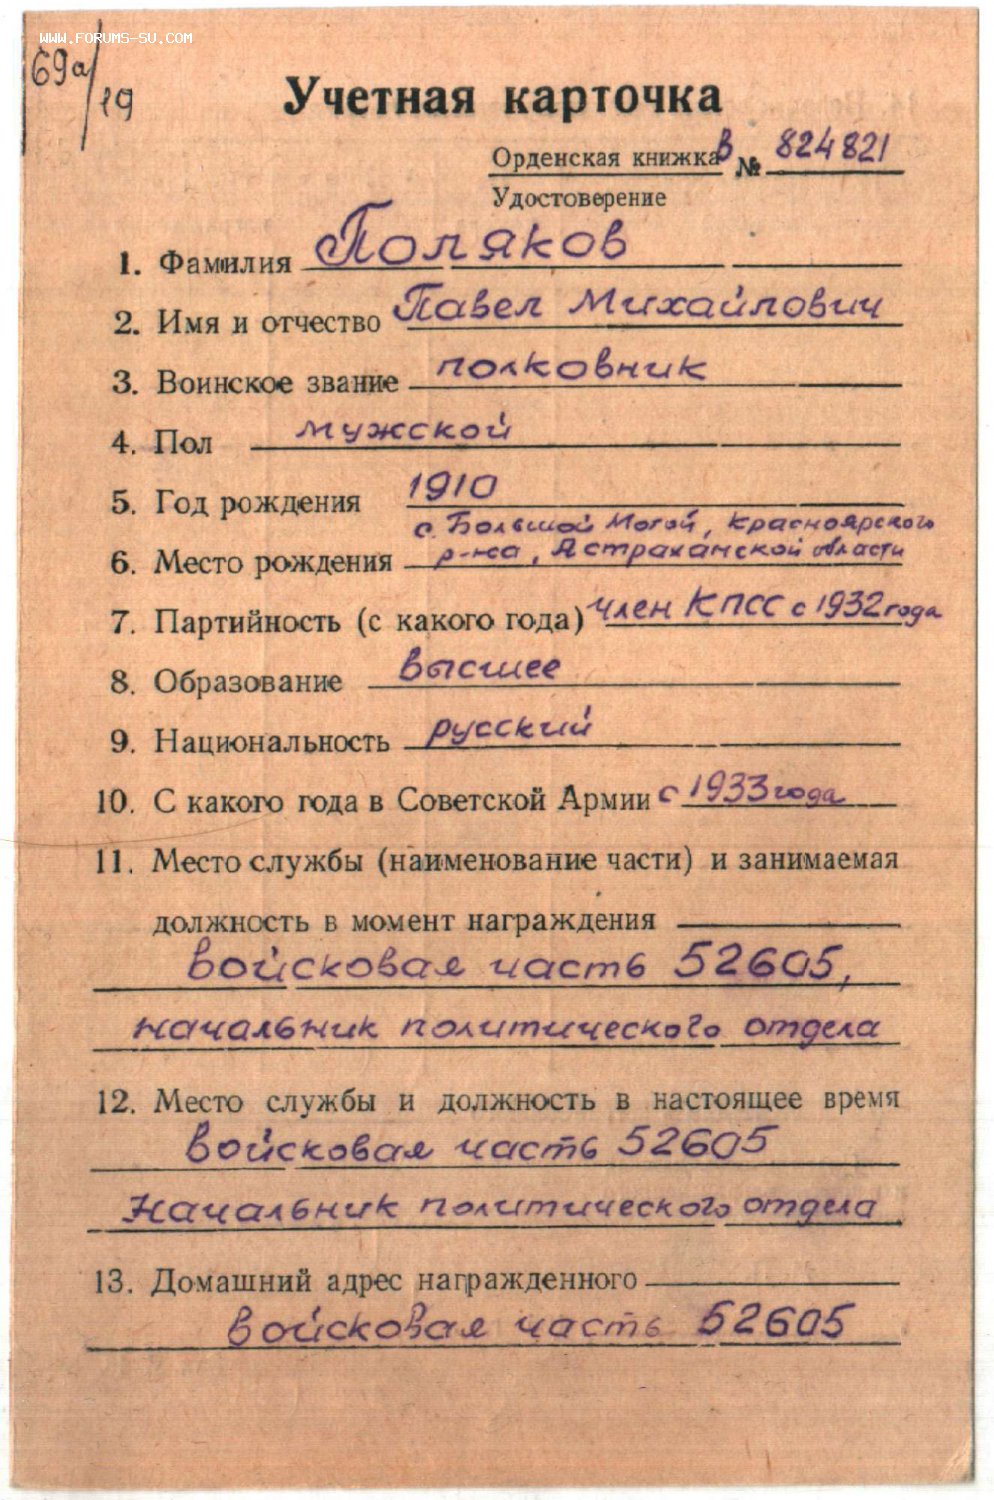 WWW.FORUMS-SU.COM
69а/19
Учетная карточка
Орденская книжка В № 824821
Удостоверение
1. Фамилия Поляков
2. Имя и отчество Павел Михайлович
3. Воинское звание полковник
4. Пол мужской
5. Год рождения 1910
с. Большой Могой, Красноярского
6. Место рождения р-на, Астраханской области
7. Партийность (с какого года) член КПСС с 1932 года
8. Образование высшее
9. Национальность русский
10. С какого года в Советской Армии с 1933 года
11. Место службы (наименование части) и занимаемая
должность в момент награждения
войсковая часть 52605,
начальник политического отдела
12. Место службы и должность в настоящее время
войсковая часть 52605
Начальник политического отдела
13. Домашний адрес награжденного
войсковая часть 52605